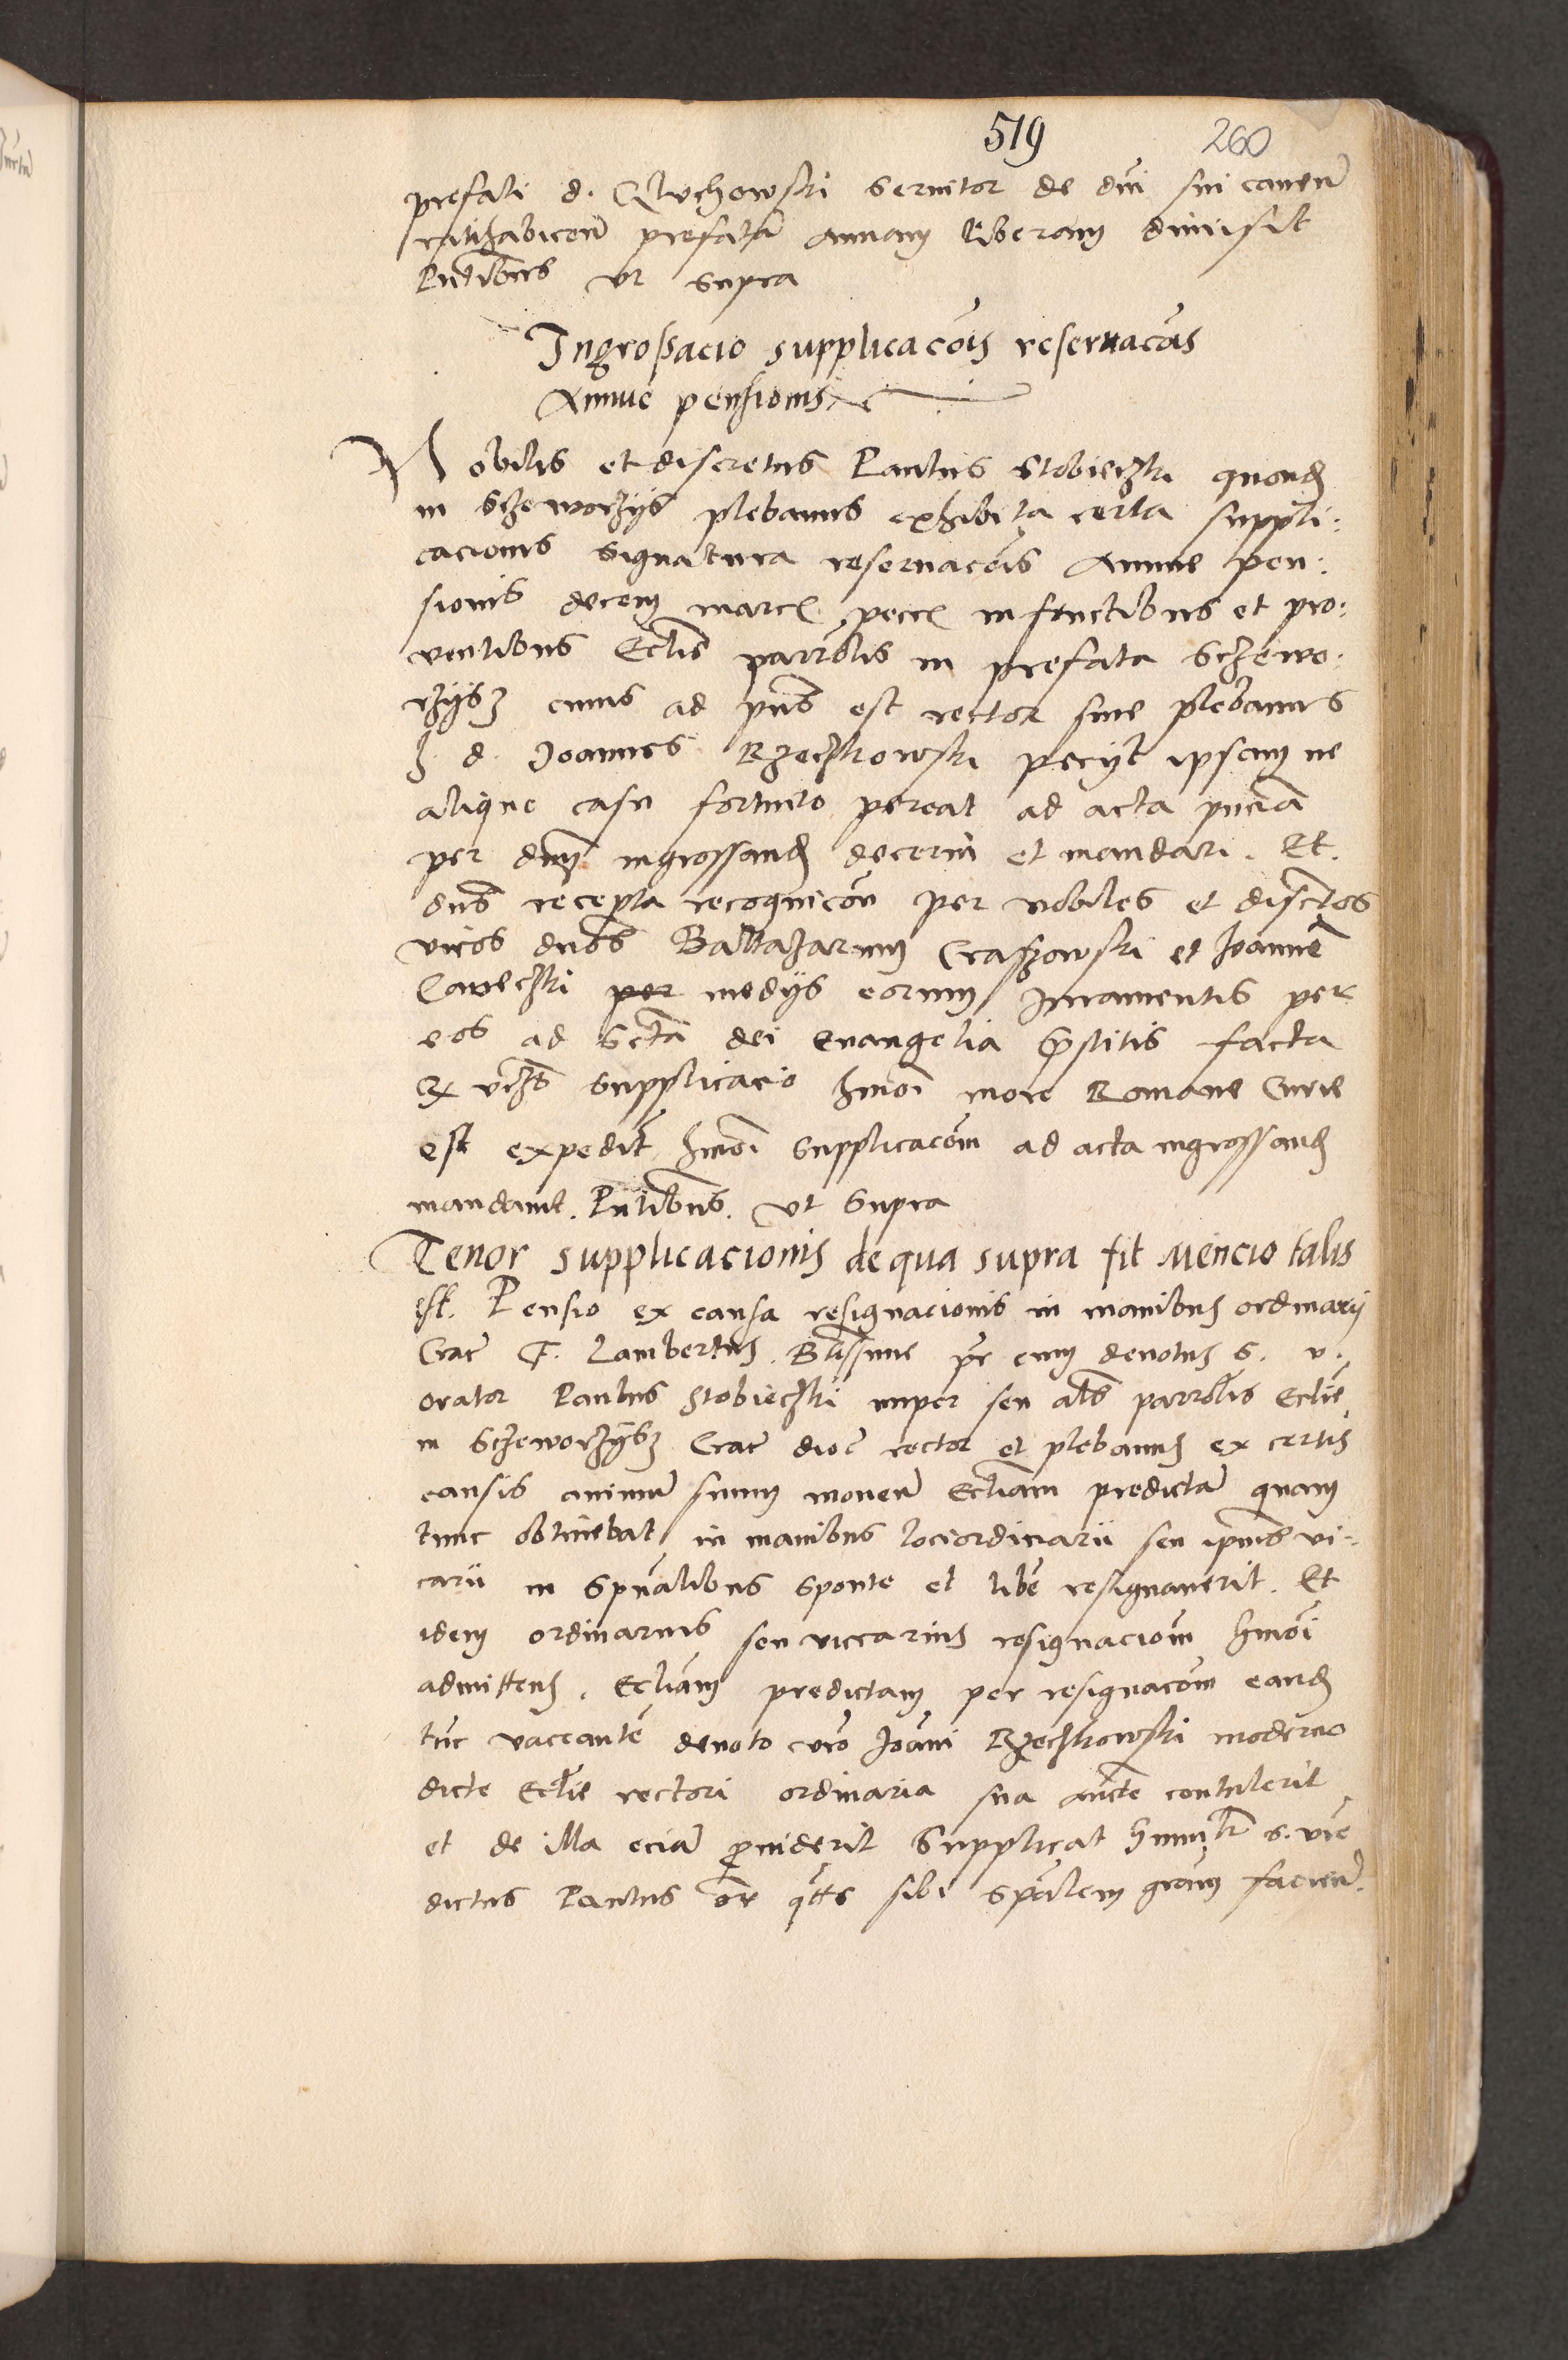 519 260
prefati d. Gluchowski servitor de dni sui caven
ratihabicon prefatam annam liberam dimisit
Pntibus vt supra
Ingrossacio supplicacois reservacois
Annue pensionis
Nobilis et discretus Paulus Stobieczki quond
in Sczeworzÿs plebanus exhibita certa suppli:
cacionis signatura reservacois Annue pen:
sionis decem marc pecc in fructibus et pro:
ventibus Eclis parrolis in prefata Sczewo:
rzÿsz cuius ad pns est rector siue plebanus
h d. Joannes Rzeczkowski peciÿt ipsam ne
aliquo casu fortuito pereat ad acta pncia
per dnm ingrossand decerni et mandari. Et.
dns recepta recognicon per nobiles et discretos
viros dnos Baltazarum Craszowski et Joannem
Caveczki per medÿs eorum Juramentis per
eos ad scta dei evangelia prestitis facta
Ex quibus Supplicacio hmoi more Romane Curie
est expedit hmoi supplicacom ad acta ingrossand
mandavit. Pntibus. vt supra
Tenor supplicacionis de qua supra fit mencio talis
est. Pensio ex causa resignacionis in manibus ordinarij
Crac F. Lambertus. Btissime pr cum devotus s. v.
orator Paulus Stobieczki nuper seu als parrolis Eclie
in Sczeworzÿsz Crac dioc rector et plebanus ex certis
causis animum suum moven Ecliam predictam quam
tunc obtinebat in manibus loci ordinarii seu ipsius vi:
carii in spualibus sponte et libere resignaverit. Et
idem ordinarius seu viccarius resignaciom hmoi
admittens. Ecliam predictam per resignacom eand
tunc vaccante devoto viro Joani Rzeczkowski moderno
dicte Eclie rectori ordinaria sua aucte contulerit
et de illa eciam providerit Supplicat humilr s. vre
dictus Paulus or qtts sibi spcialem gram facien.